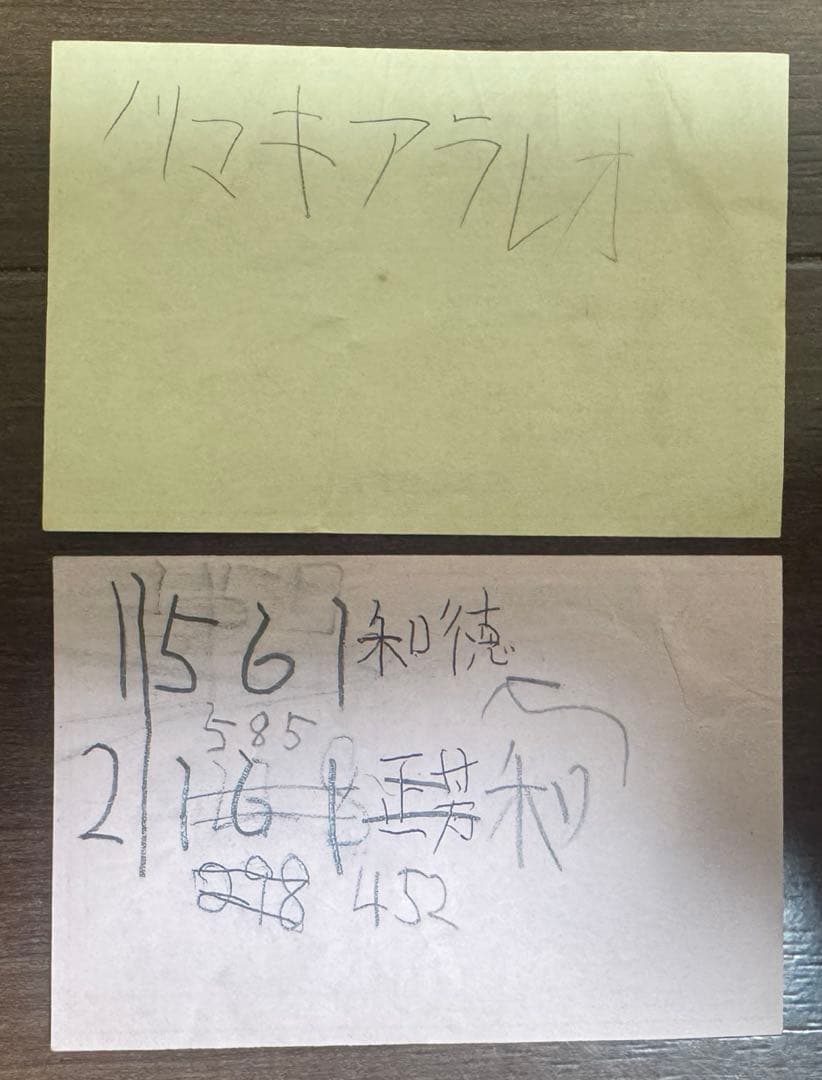 ノリマキアラレオ
1 561 和徳
585
2 161 正芳 和
298 452